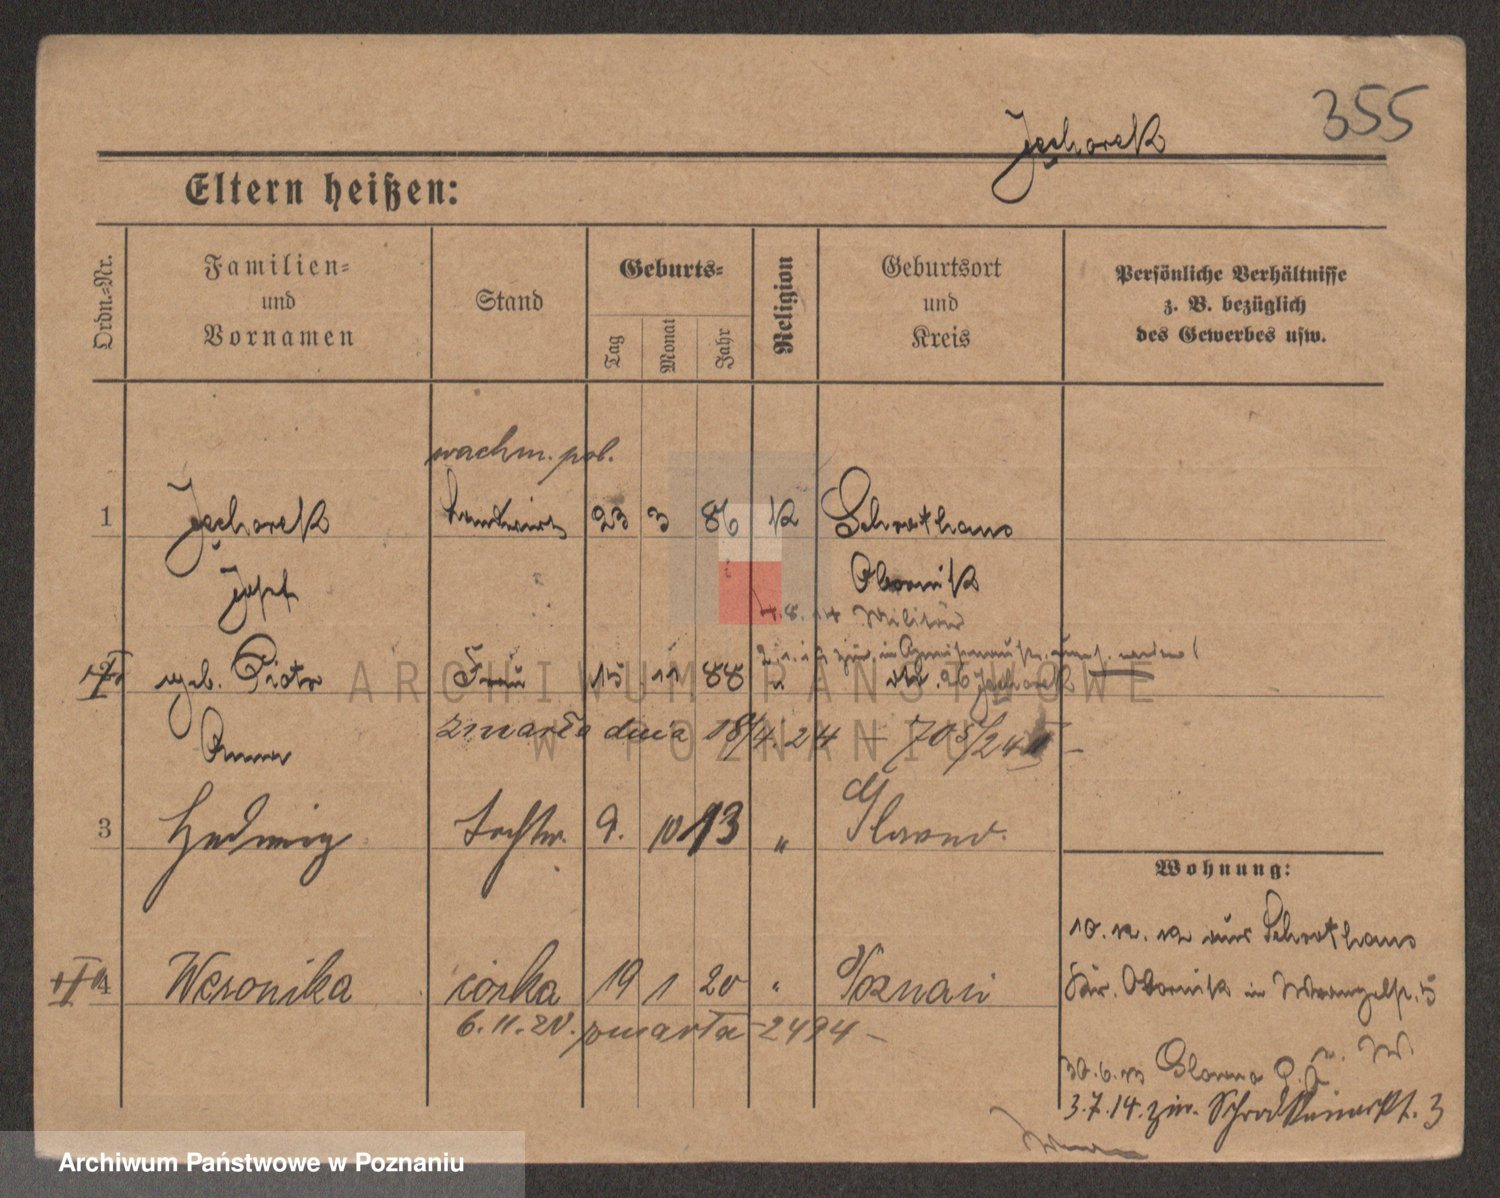 355
Jęchorek
Eltern heißen:
Ordn.-Nr.
Familien-
und
Vornamen
Stand
Geburts-
Tag
Monat
Jahr
Religion
Geburtsort
und
Kreis
Persönliche Verhältnisse
z. B. bezüglich
des Gewerbes usw.
wachm. pol.
1 Jęchorek 23 3 86 K Schrotthaus
Josef Obornik
4.8.14 Militär
2 geb. Piotr Frau 15 11 88
Anna zmarła dnia 18/4.24 – 705/24 –
3 Hedwig Tochter 9. 10 13 "
Wohnung:
10. 12. 12 aus Schrotthaus
4 Weronika córka 19 1 20 " Poznań
Kr. Obornik in 5
6.11.20. zmarła – 2494 –
30.6.13 Glowno
3.7.14. Schrodkamarkt. 3
ARCHIWUM PAŃSTWOWE
W POZNANIU
Archiwum Państwowe w Poznaniu